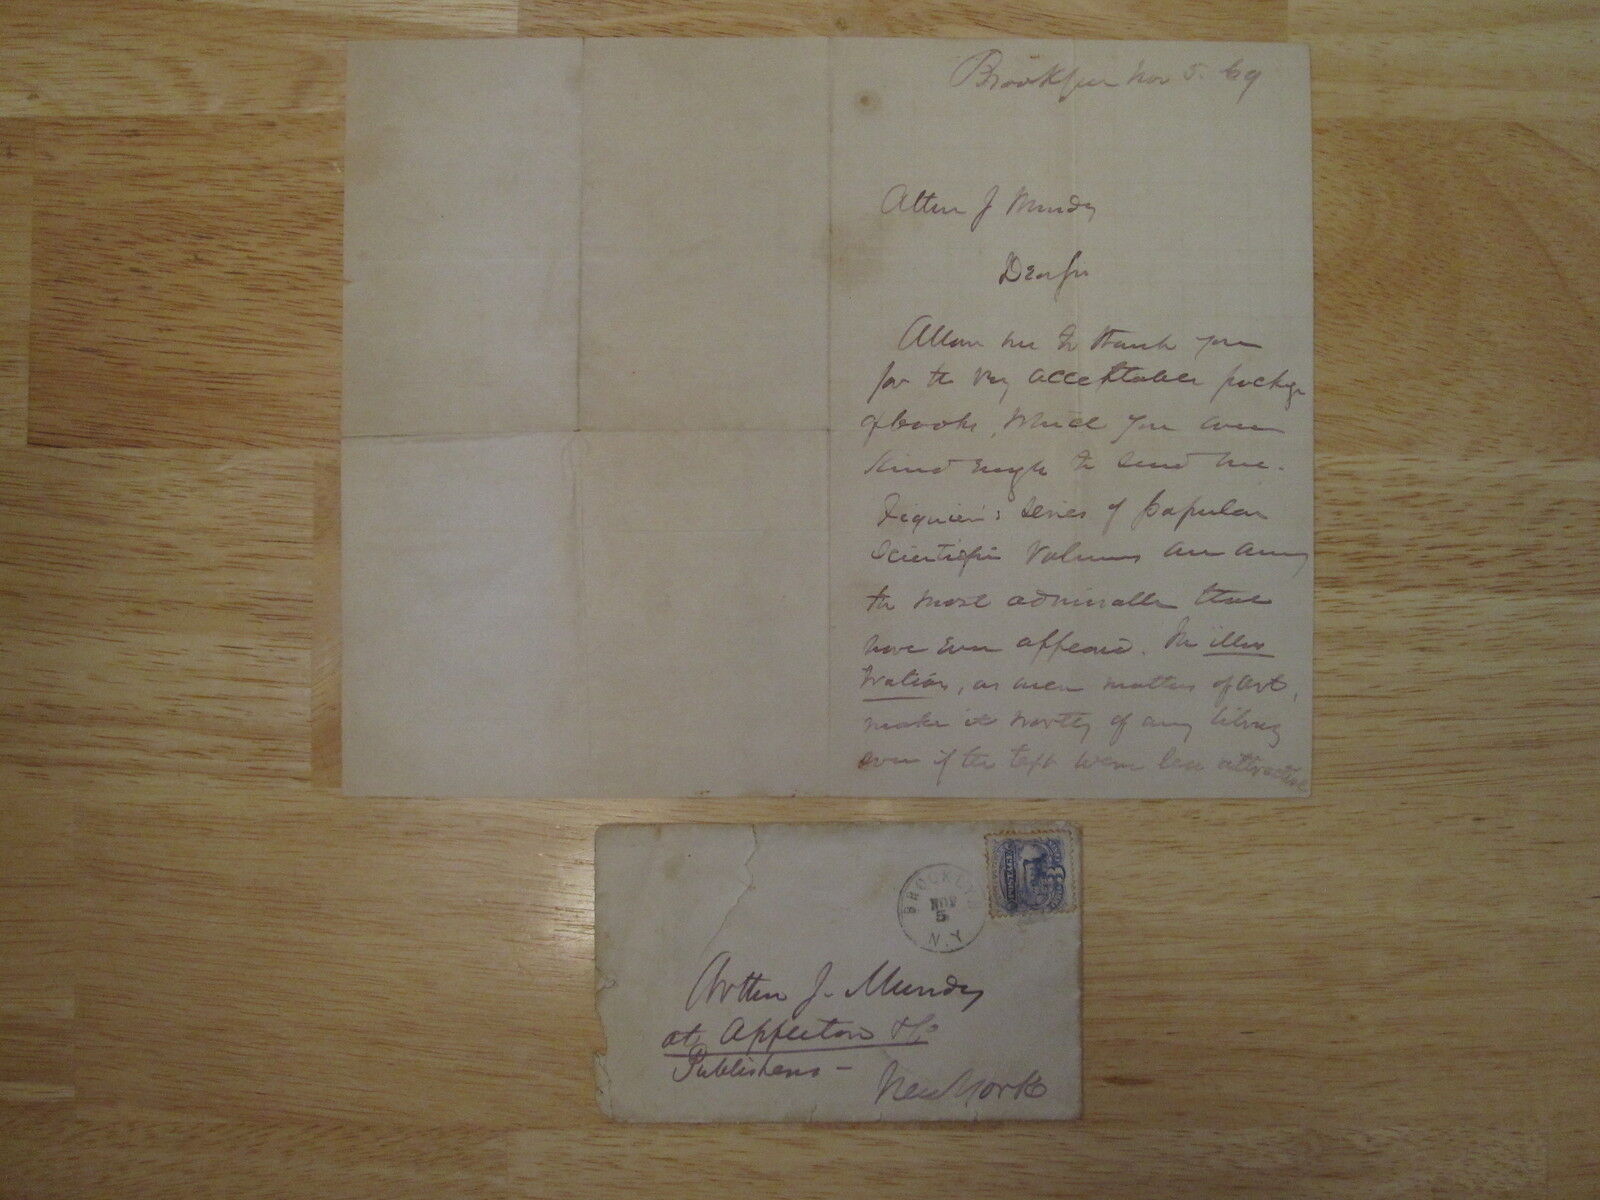 Brooklyn Nov 5. 69
Arthur J Mundy
Dear Sir
Allow me to thank you
for the very acceptable package
of books, which you were
kind enough to send me.
Figuier's series of popular
scientific volumes are among
the most admirable that
have ever appeared. The illus
trations, as mere matters of art,
make it worthy of any library
even if the text were less attractive
BROOKLYN
NOV
5
N.Y.
Arthur J. Mundy
at Appleton & Co
Publishers –
New York